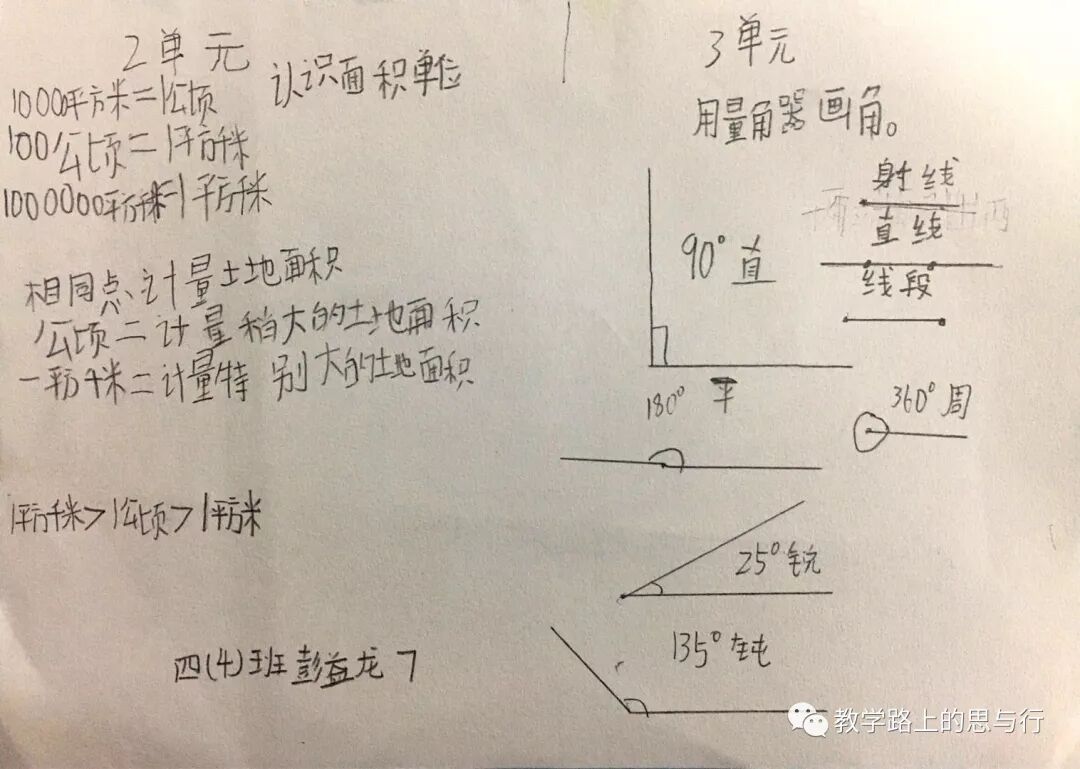 2单元
认识面积单位
1000平方米=1公顷
100公顷=1平方千米
1000000平方千米=1平方千米
相同点、计量土地面积
公顷=计量稍大的土地面积
一平方千米=计量特别大的土地面积
1平方千米>1公顷>1平方米
四(4)班彭益龙7
3单元
用量角器画角。
射线
直线
线段
90°直
180°平
360°周
25°锐
135°钝
教学路上的思与行